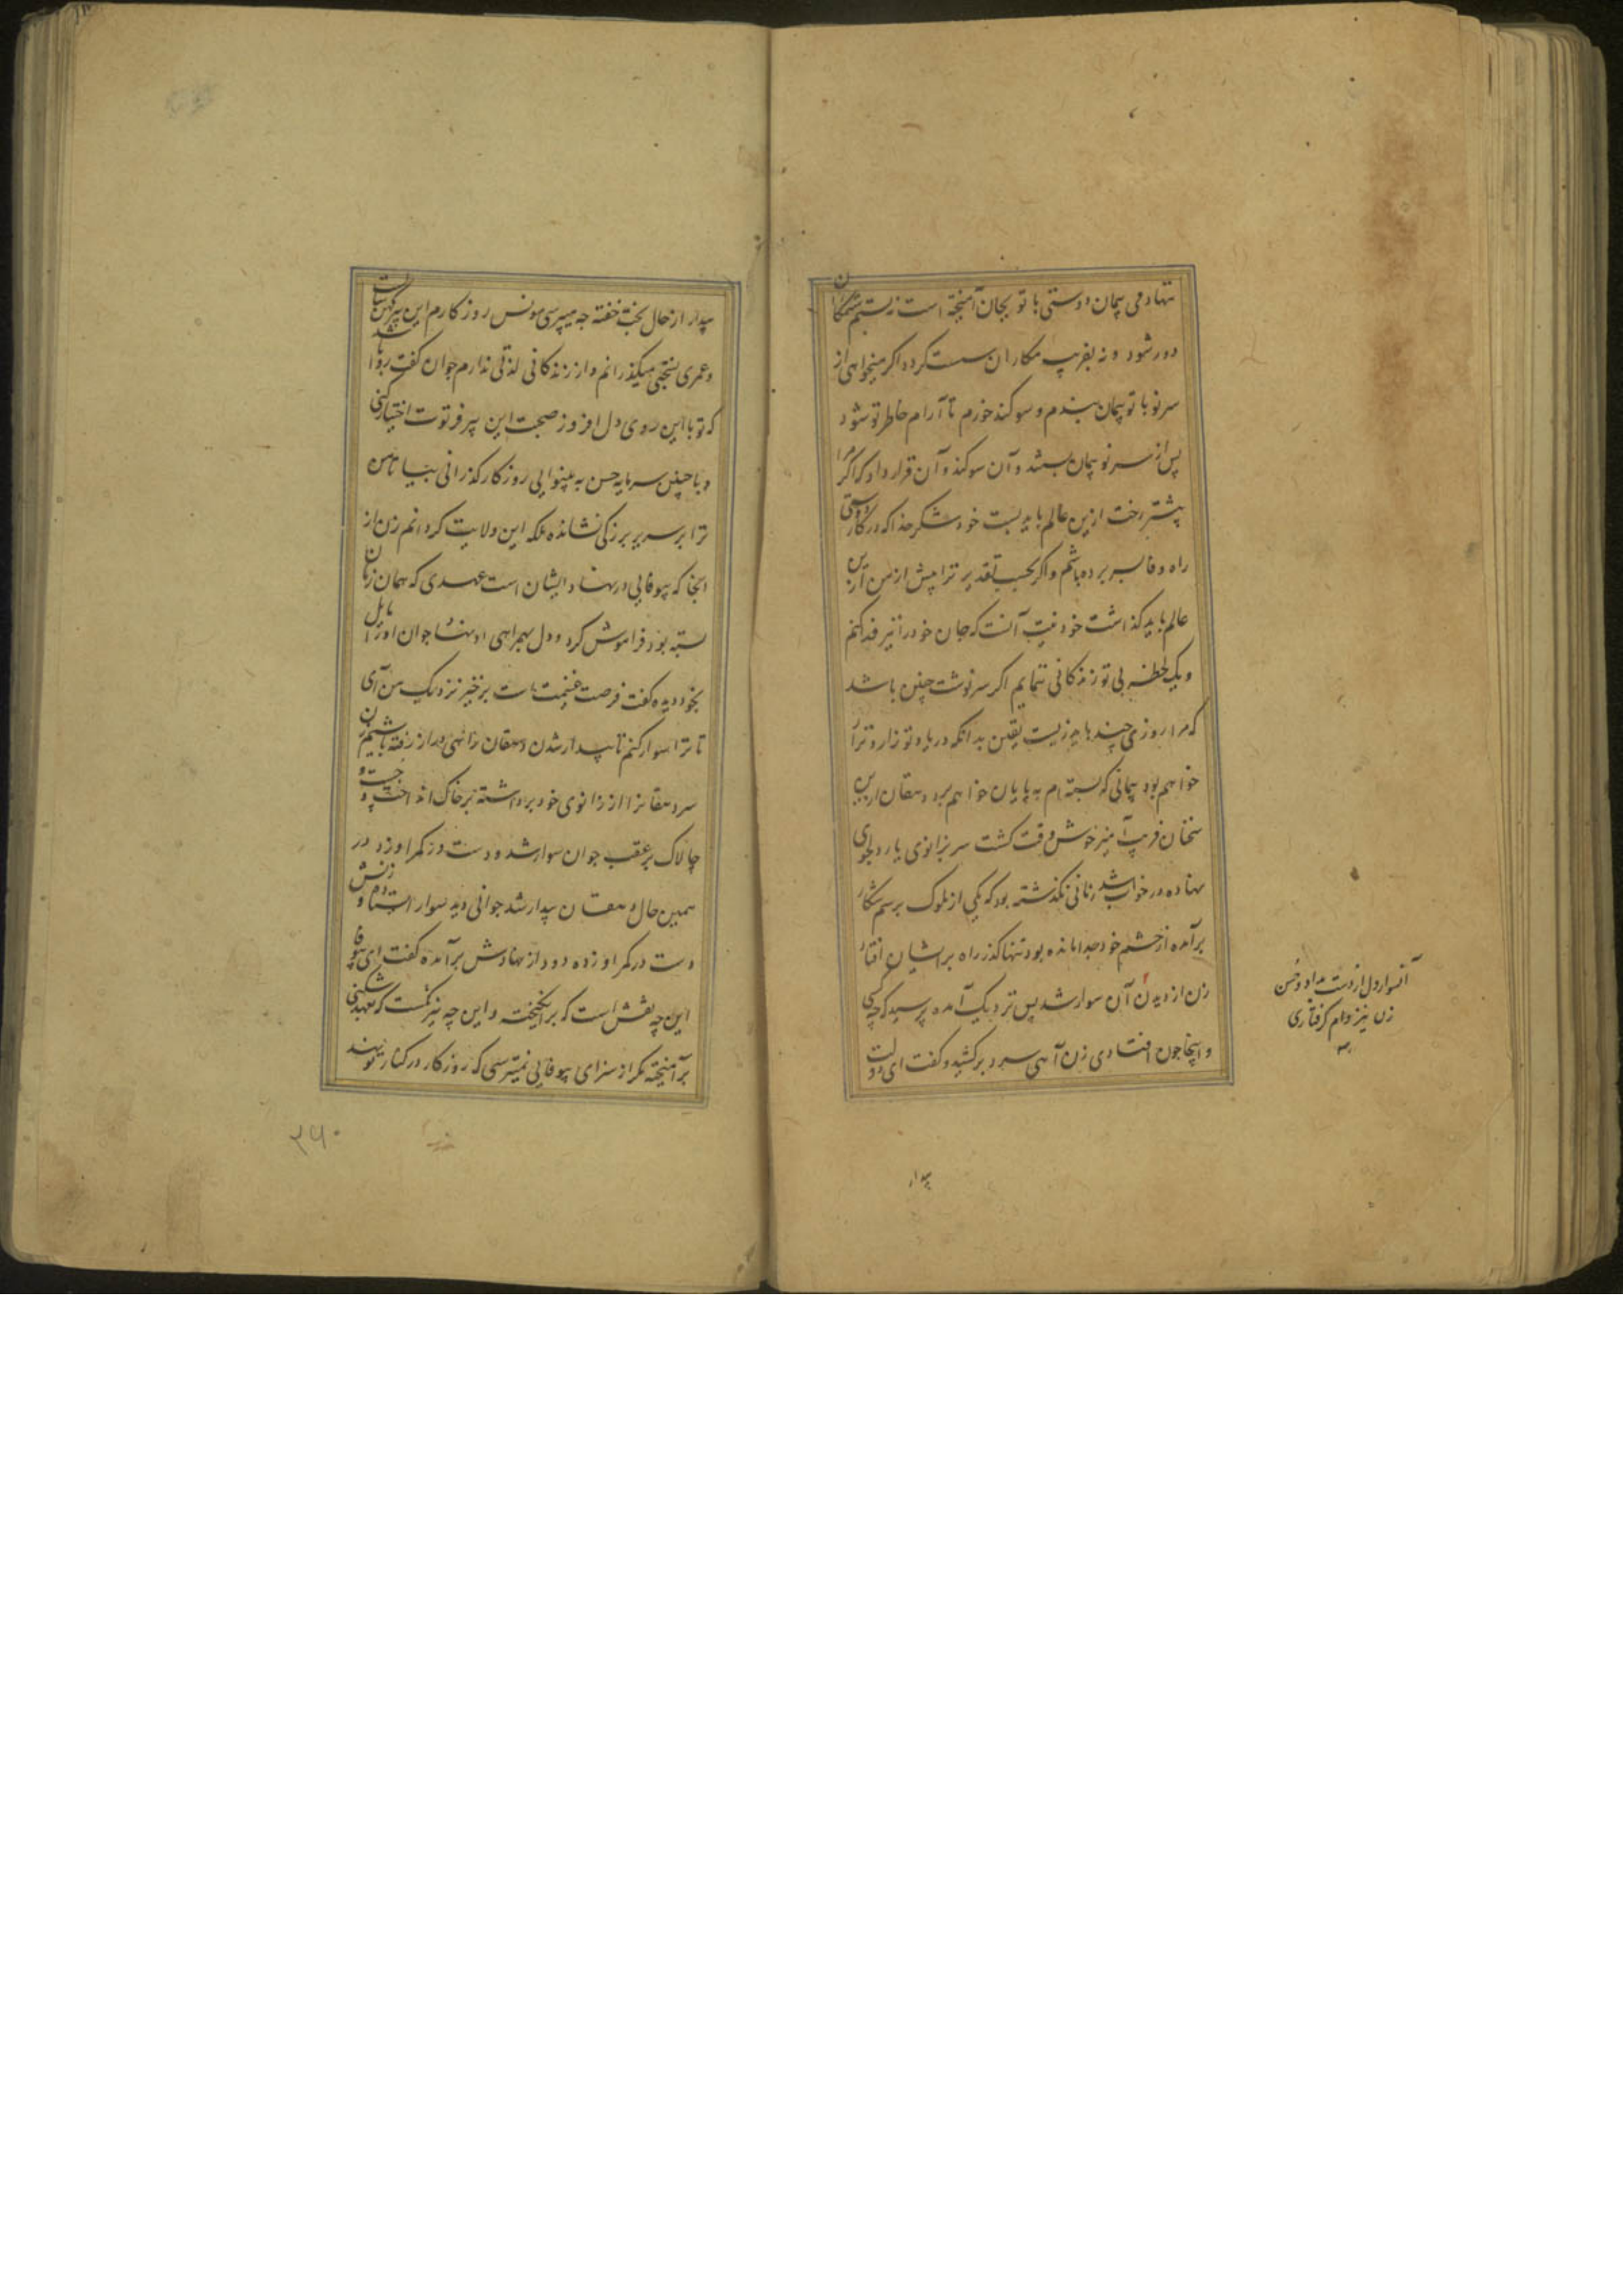 نتهادمی پیمان دوستی با تو بجان آمیخته است نه بستم ستمکاران
دور شود و نه بفریب مکاران سست کردد اکر میخواهی از
سر نو با تو پیمان ببندم و سوکند خورم تا آرام خاطر تو شود
پس از سر نو پیمان بستند و آن سوکند و آن قرار داد که اکر مرا
پیشتر رخت ازین عالم باید بست خود شکر خدا که در کار دوستی
راه وفا بسر برده باشم و اکر بحسب تقدیر ترا پیش از من ازین
عالم باید کذاشت خود نیت آنست که جان خود را نیز فدا کنم
و یک لحظه بی تو زندکانی ننمایم اکر سرنوشت چنین باشد
که مرا روزی چند باید زیست یقین بدانکه در یاد تو زار و نزار
خواهم بود پیمانی که بسته ام به پایان خواهم برد دهقان ازین
سخنان فریب آمیز خوش وقت کشت سر بزانوی یار دلجوی
نهاده در خواب شد زمانی نکذشته بود که یکی از ملوک برسم شکار
برآمده از حشم خود جدا مانده بود تنها کذر راه بر ایشان افتاد
زن از دیدن آن سوار شد پس نزدیک آمده پرسید که چه کسی
و اینجا چون افتادی زن آهی سرد برکشید و کفت ای دولت
آنسوار دل از دست بداد و حسن
زن نیز دام کرفتاری
بیدار
بیدار از حال بخت خفته چه میپرسی مونس روزکارم این پیر کهن سالست
و عمری بسختی میکذرانم و از زندکانی لذتی ندارم جوان کفت روا باشد
که تو با این روی دل افروز صحبت این پیر فرتوت اختیار کنی
و با چنین سرمایه حسن به بینوایی روزکار کذرانی بیا تا من
ترا بر سریر بزرکی نشانده ملکه این ولایت کردانم زن از
انجا که بیوفایی در نهاد ایشان است عهدی که همان زمان
بسته بود فراموش کرد و دل بهمراهی او نهاد جوان او را مایل
بخود دیده کفت فرصت غنیمت است برخیز نزدیک من آی
تا ترا سوار کنم تا بیدار شدن دهقان راهی دراز رفته باشیم زن
سر دهقانرا از زانوی خود برداشته بر خاک انداخت و چست و
چالاک بر عقب جوان سوار شد و دست در کمر او زد در
همین حال دهقان بیدار شد جوانی دید سوار ایستاده و زنش
دست در کمر او زده دود از نهادش برآمده کفت ای بیوفا
این چه نقش است که برانکیخته و این چه نیرنکست که بعهد شکنی
برآمیخته مکر از سزای بیوفایی نمیترسی که روزکار در کنار تو نهند
۲۶۰